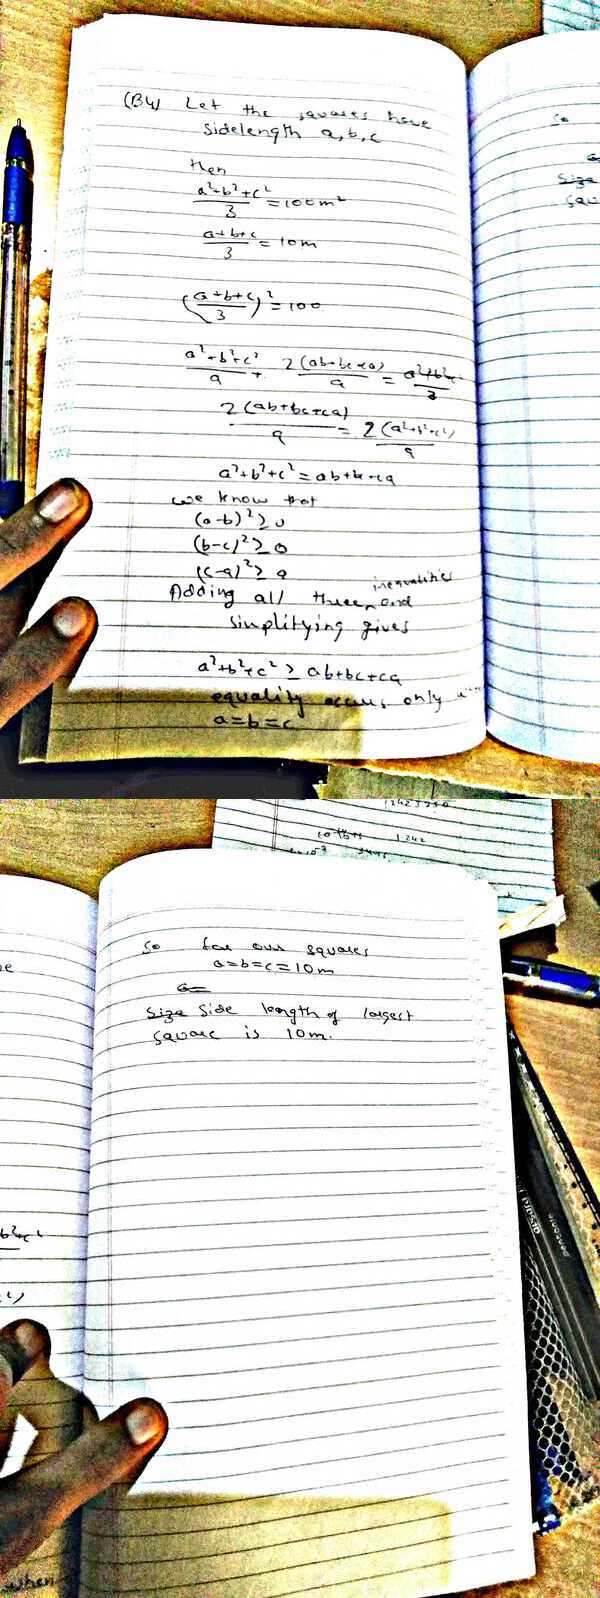 (B4) Let the squares have
sidelength a, b, c
then
a²+b²+c²/3 = 100m²
a+b+c/3 = 10m
(a+b+c/3)² = 100
a²+b²+c²/9 + 2(ab+bc+ca)/9 = a²+b²+c²/3
2(ab+bc+ca)/9 = 2(a²+b²+c²)/9
a²+b²+c² = ab+bc+ca
we know that
(a-b)² ≥ 0
(b-c)² ≥ 0
(c-a)² ≥ 0
inequalities
Adding all three, and
simplifying gives
a²+b²+c² ≥ ab+bc+ca
equality occurs only
a=b=c
So
Size
squ
1242
So for our squares
a=b=c=10m
a=
Size Side length of largest
square is 10m.
b²+c²
when